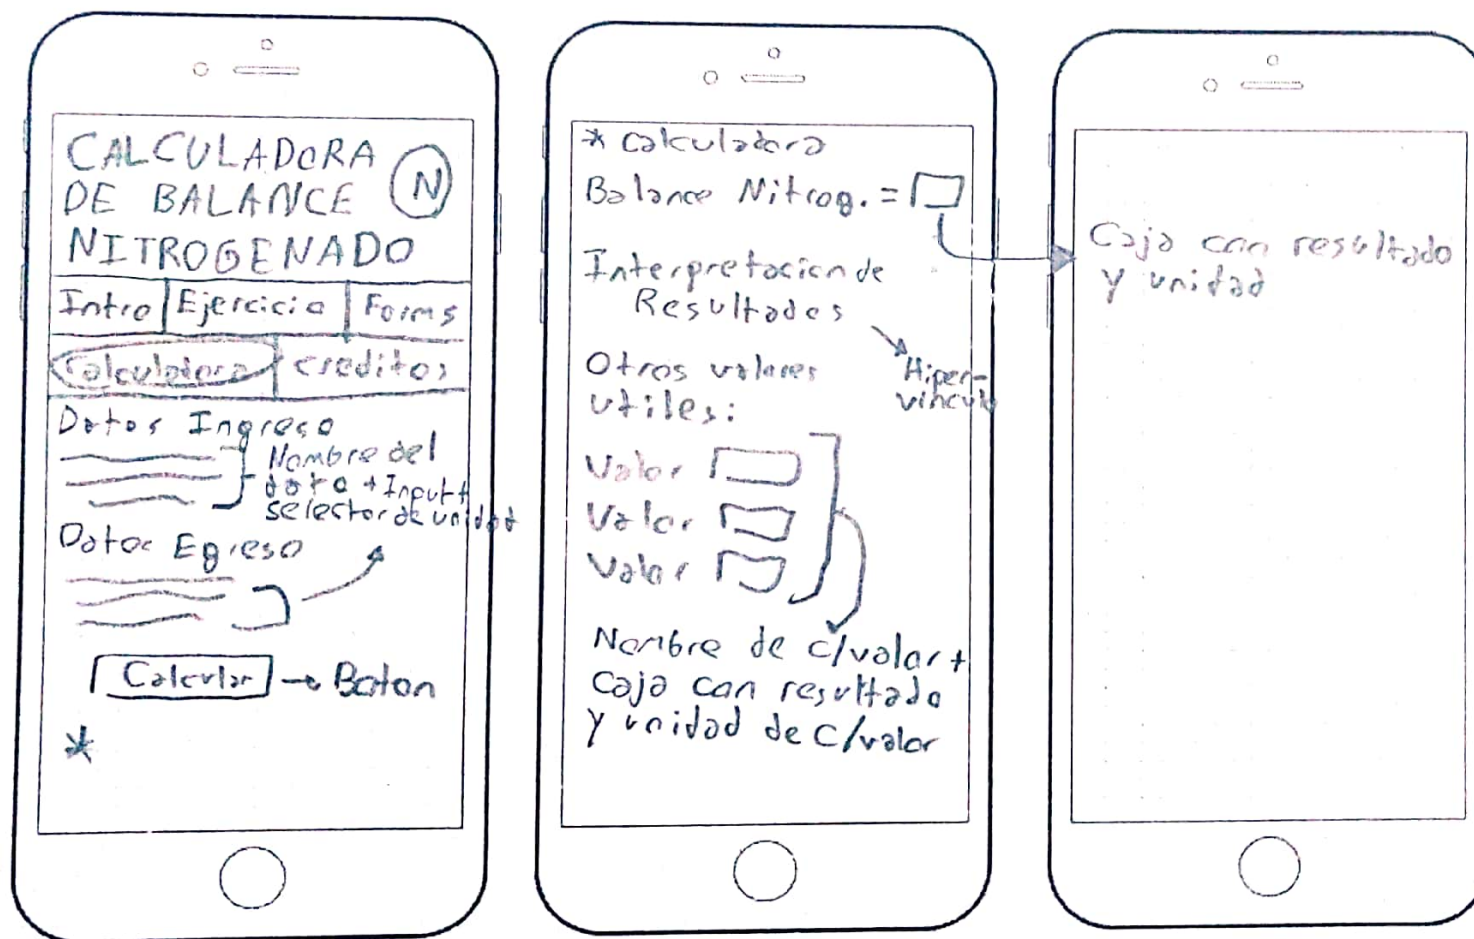 CALCULADORA
DE BALANCE
NITROGENADO
N
Intro Ejercicio Forms
Calculadora Creditos
Datos Ingreso
Nombre del
dato + Input +
selector de unidad
Datos Egreso
Calcular → Boton
*
* Calculadora
Balance Nitrog. =
Interpretacion de
Resultados
Hiper-
vinculo
Otros valores
utiles:
Valor
Valor
Valor
Nombre de c/valor +
Caja con resultado
y unidad de c/valor
Caja con resultado
y unidad